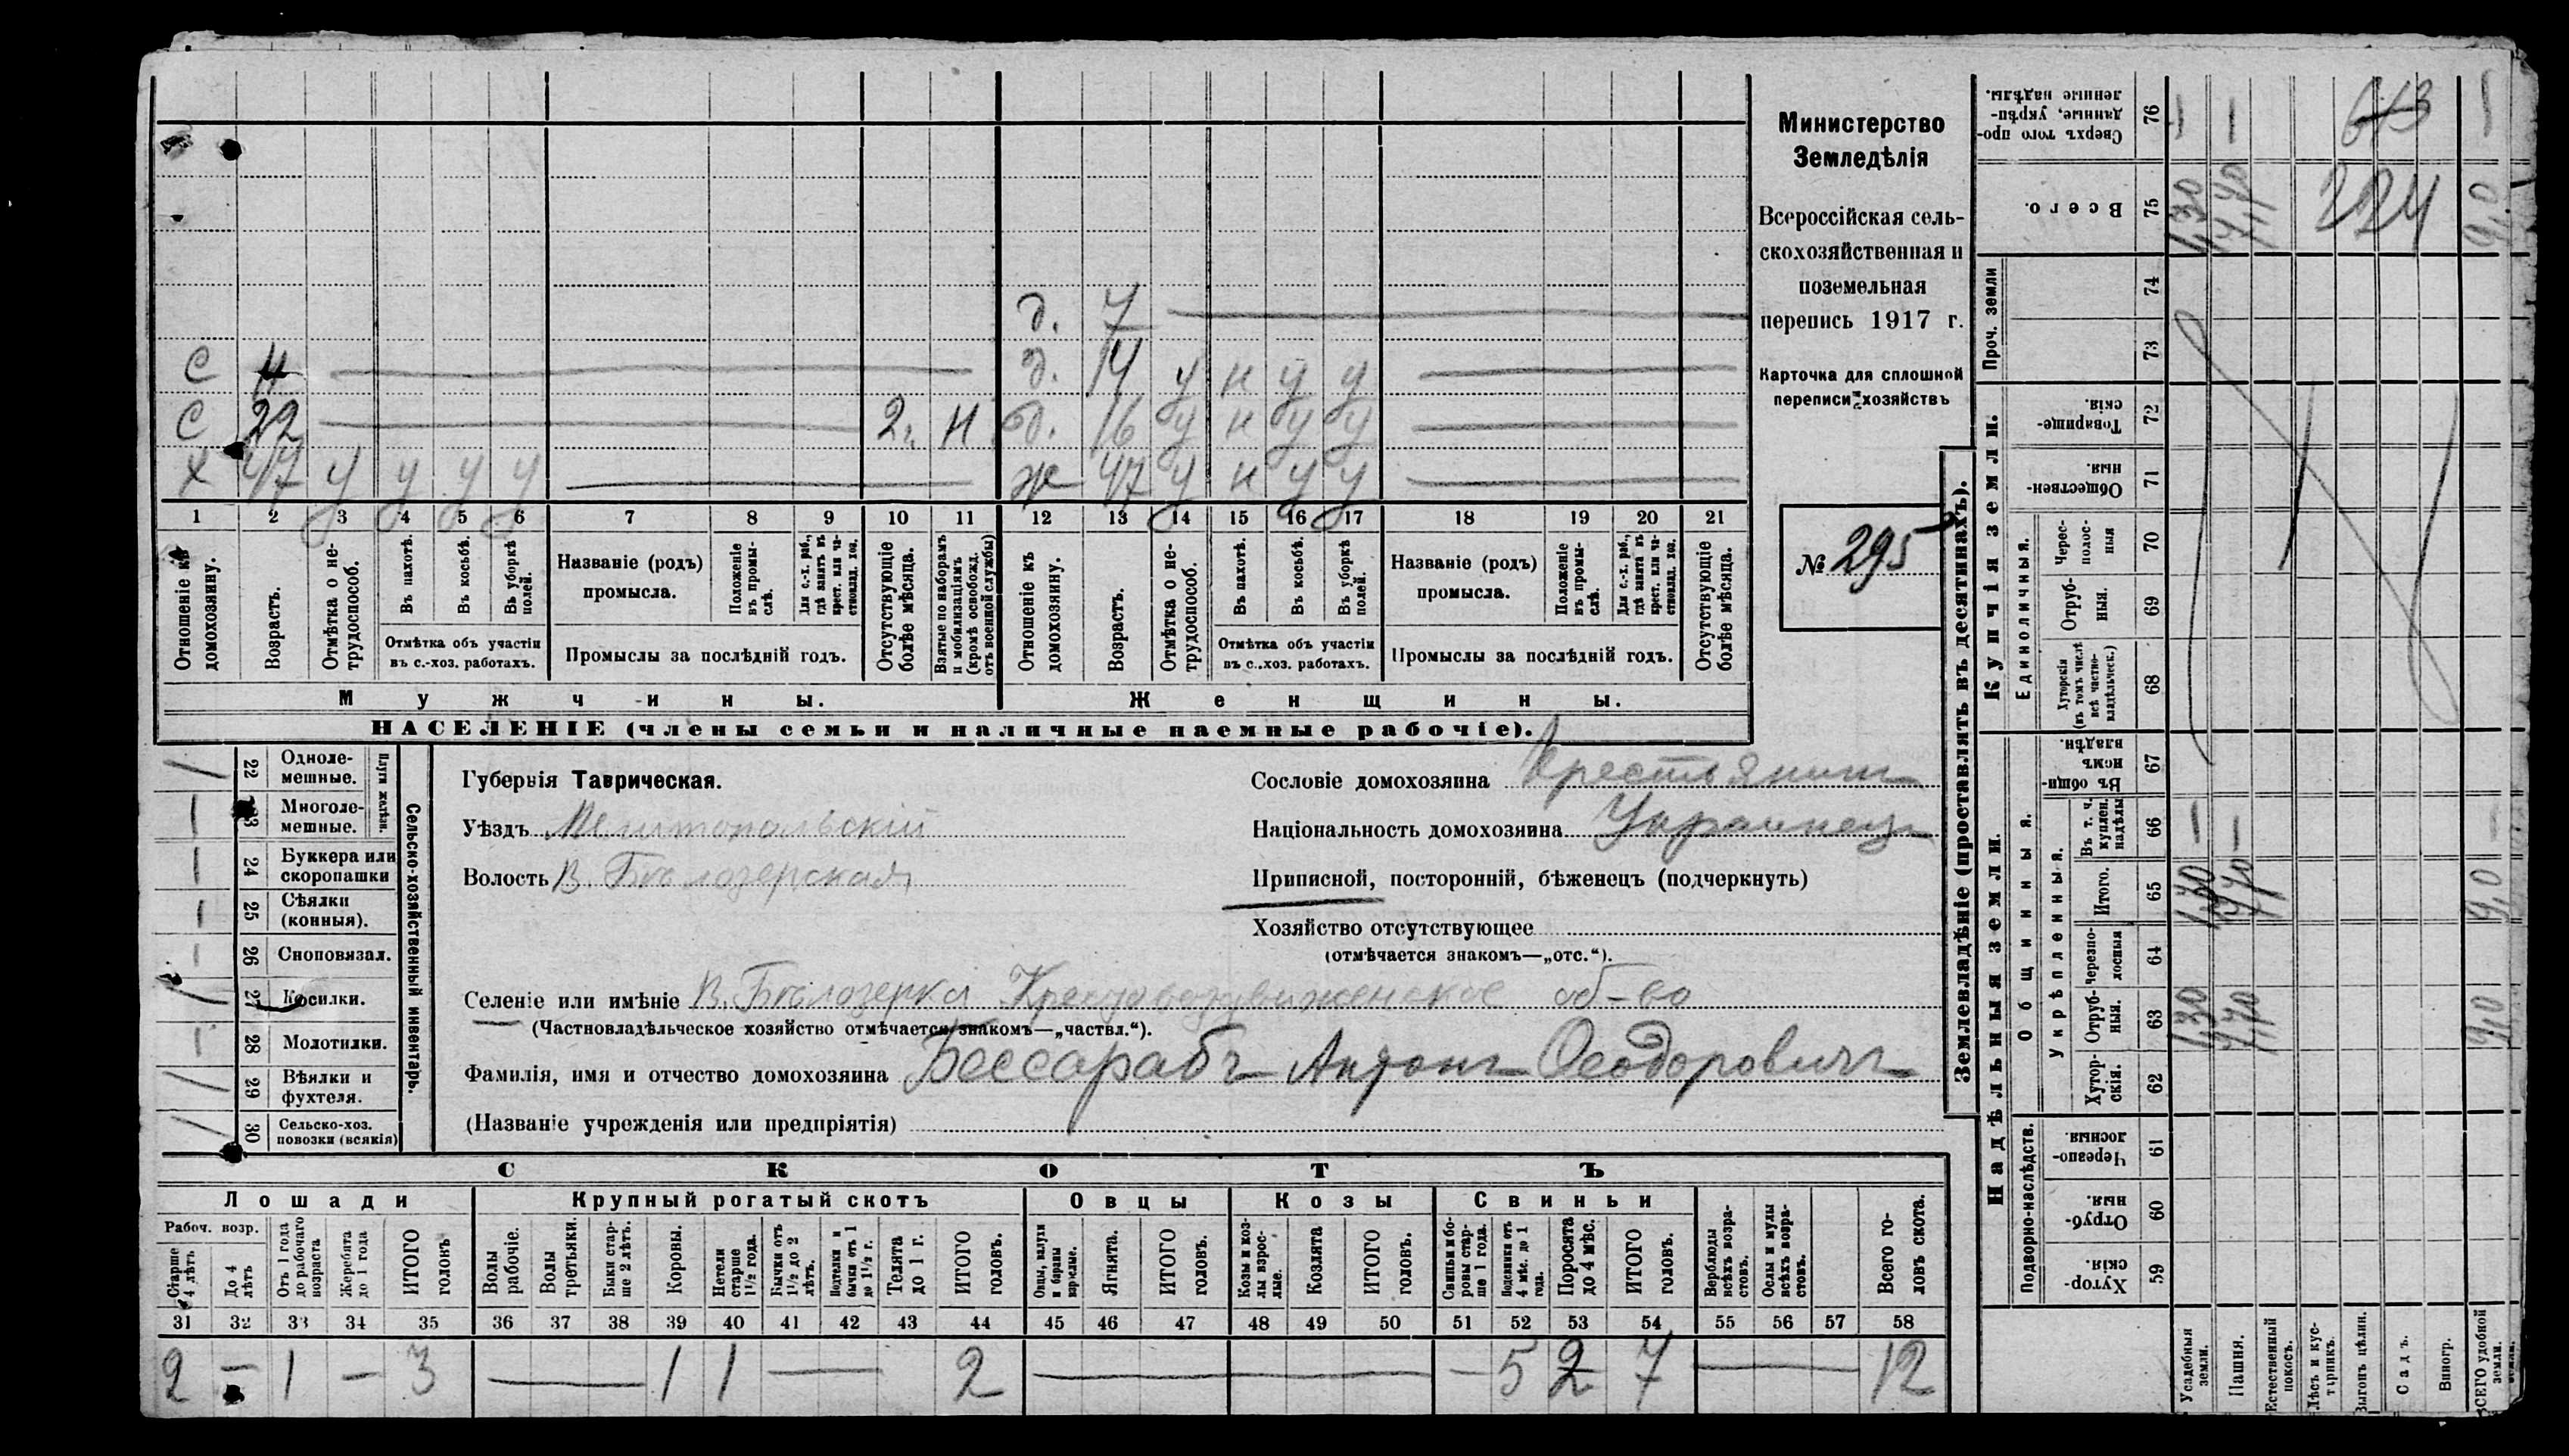 Министерство
Земледѣлія
Всероссійская сель-
скохозяйственная и
поземельная
перепись 1917 г.
Карточка для сплошной
переписи хозяйствъ
№ 295
д. 7
С 4 д. 14 у н у у
С 22 2 н д. 16 у н у у
Х 47 у у у у ж 47 у н у у
1 2 3 4 5 6 7 8 9 10 11 12 13 14 15 16 17 18 19 20 21
Отношеніе къ домохозяину.
Возрастъ.
Отмѣтка о не-трудоспособ.
Въ пахотѣ.
Въ косьбѣ.
Въ уборкѣ полей.
Отмѣтка объ участіи
въ с.-хоз. работахъ.
Названіе (родъ)
промысла.
Положеніе въ промы-слѣ.
Для с.-х. раб., гдѣ занятъ въ крест. или ча-стновлад. хоз.
Промыслы за послѣдній годъ.
Отсутствующіе болѣе мѣсяца.
Взятые по наборамъ и мобилизаціямъ (кромѣ освобожд. отъ военной службы)
Отношеніе къ домохозяину.
Возрастъ.
Отмѣтка о не-трудоспособ.
Въ пахотѣ.
Въ косьбѣ.
Въ уборкѣ полей.
Отмѣтка объ участіи
въ с..хоз. работахъ.
Названіе (родъ)
промысла.
Положеніе въ промы-слѣ.
Для с.-х. раб., гдѣ занята въ крест. или ча-стновлад. хоз.
Промыслы за послѣдній годъ.
Отсутствующіе болѣе мѣсяца.
Мужчины. Женщины.
НАСЕЛЕНІЕ (члены семьи и наличные наемные рабочіе).
Сельско-хозяйственный инвентарь.
Плуги желѣзн.
22 Одноле-мешные.
23 Многоле-мешные.
24 Буккера или скоропашки
25 Сѣялки (конныя).
26 Сноповязал.
27 Косилки.
28 Молотилки.
29 Вѣялки и фухтеля.
30 Сельско-хоз. повозки (всякія)
Губернія Таврическая.
Уѣздъ Мелитопольскій
Волость В. Бѣлозерская
Сословіе домохозяина Крестьянинъ
Національность домохозяина Украинецъ
Приписной, посторонній, бѣженецъ (подчеркнуть)
Хозяйство отсутствующее
(отмѣчается знакомъ—„отс.“).
Селеніе или имѣніе В. Бѣлозерка Крестовоздвиженское об-во
(Частновладѣльческое хозяйство отмѣчается знакомъ—„частвл.“).
Фамилія, имя и отчество домохозяина Бессарабъ Антонъ Ѳеодоровичъ
(Названіе учрежденія или предпріятія)
СКОТЪ
Лошади Крупный рогатый скотъ Овцы Козы Свиньи
Рабоч. возр.
Старше 4 лѣтъ
До 4 лѣтъ
Отъ 1 года до рабочаго возраста
Жеребята до 1 года
ИТОГО головъ
Волы рабочіе.
Волы третьяки.
Быки стар-ше 2 лѣтъ.
Коровы.
Нетели старше 1½ года.
Бычки отъ 1½ до 2 лѣтъ.
Подтелки и бычки отъ 1 до 1½ г.
Телята до 1 г.
ИТОГО головъ.
Овцы, валухи и бараны взрослые.
Ягнята.
ИТОГО головъ.
Козы и коз-лы взрос-лые.
Козлята
ИТОГО головъ.
Свиньи и бо-ровы стар-ше 1 года.
Подсвинки отъ 4 мѣс. до 1 года.
Поросята до 4 мѣс.
ИТОГО головъ.
Верблюды всѣхъ возра-стовъ.
Ослы и мулы всѣхъ возра-стовъ.
Всего го-ловъ скота.
31 32 33 34 35 36 37 38 39 40 41 42 43 44 45 46 47 48 49 50 51 52 53 54 55 56 57 58
2 — 1 — 3 — 1 1 — 2 — — 5 2 7 — 12
Землевладѣніе (проставлять въ десятинахъ).
Сверхъ того про-данные, укрѣп-ленные надѣлы. 76
613
Всего. 75
1,30 7,70 224 9,0
Проч. земли
74
73
Купчія земли.
Товарище-скія. 72
Обществен-ныя. 71
Единоличныя.
Черес-полос-ныя 70
Отруб-ныя. 69
Хуторскія (въ томъ числѣ всѣ частно-владѣльческ.) 68
Надѣльныя земли.
Общинныя.
Въ общи-номъ владѣн. 67
Укрѣпленныя.
Въ т. ч. куплен. надѣлы 66
Итого. 65
1,30 7,70 9,0
Черезпо-лосныя 64
Отруб-ныя. 63
1,30 7,70 9,0
Хутор-скія. 62
Подворно-наслѣдств.
Черезпо-лосныя. 61
Отруб-ныя. 60
Хутор-скія. 59
Усадебныя земли.
Пашня.
Естественный покосъ.
Лѣсъ и кус-тарникъ.
Выгонъ цѣлин.
Садъ.
Виногр.
ВСЕГО удобной земли.